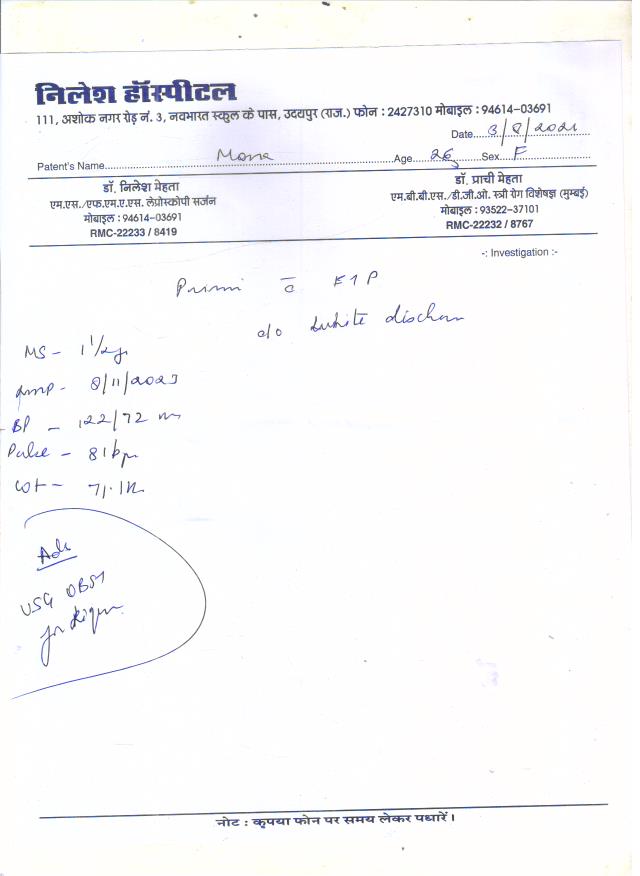 निलेश हॉस्पीटल
111, अशोक नगर रोड़ नं. 3, नवभारत स्कुल के पास, उदयपुर (राज.) फोन : 2427310 मोबाइल : 94614-03691
Date 3/8/2021
Patent's Name Mona Age 26 Sex F
डॉ. निलेश मेहता
एम.एस./एफ.एम.ए.एस. लेप्रोस्कोपी सर्जन
मोबाइल : 94614-03691
RMC-22233 / 8419
डॉ. प्राची मेहता
एम.बी.बी.एस./डी.जी.ओ. स्त्री रोग विशेषज्ञ (मुम्बई)
मोबाइल : 93522-37101
RMC-22232 / 8767
-: Investigation :-
Primi c̄
c/o white
MS - 1 1/2
Lmp - 8/11/2023
BP - 122/72
Pulse - 81 bpm
wt - 71.1
Adv
USG OBST
for
नोट : कृपया फोन पर समय लेकर पधारें।